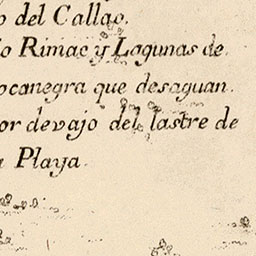 del Callao.
Rimac y Lagunas de
ocanegra que desaguan.
or devajo del lastre de
Playa.